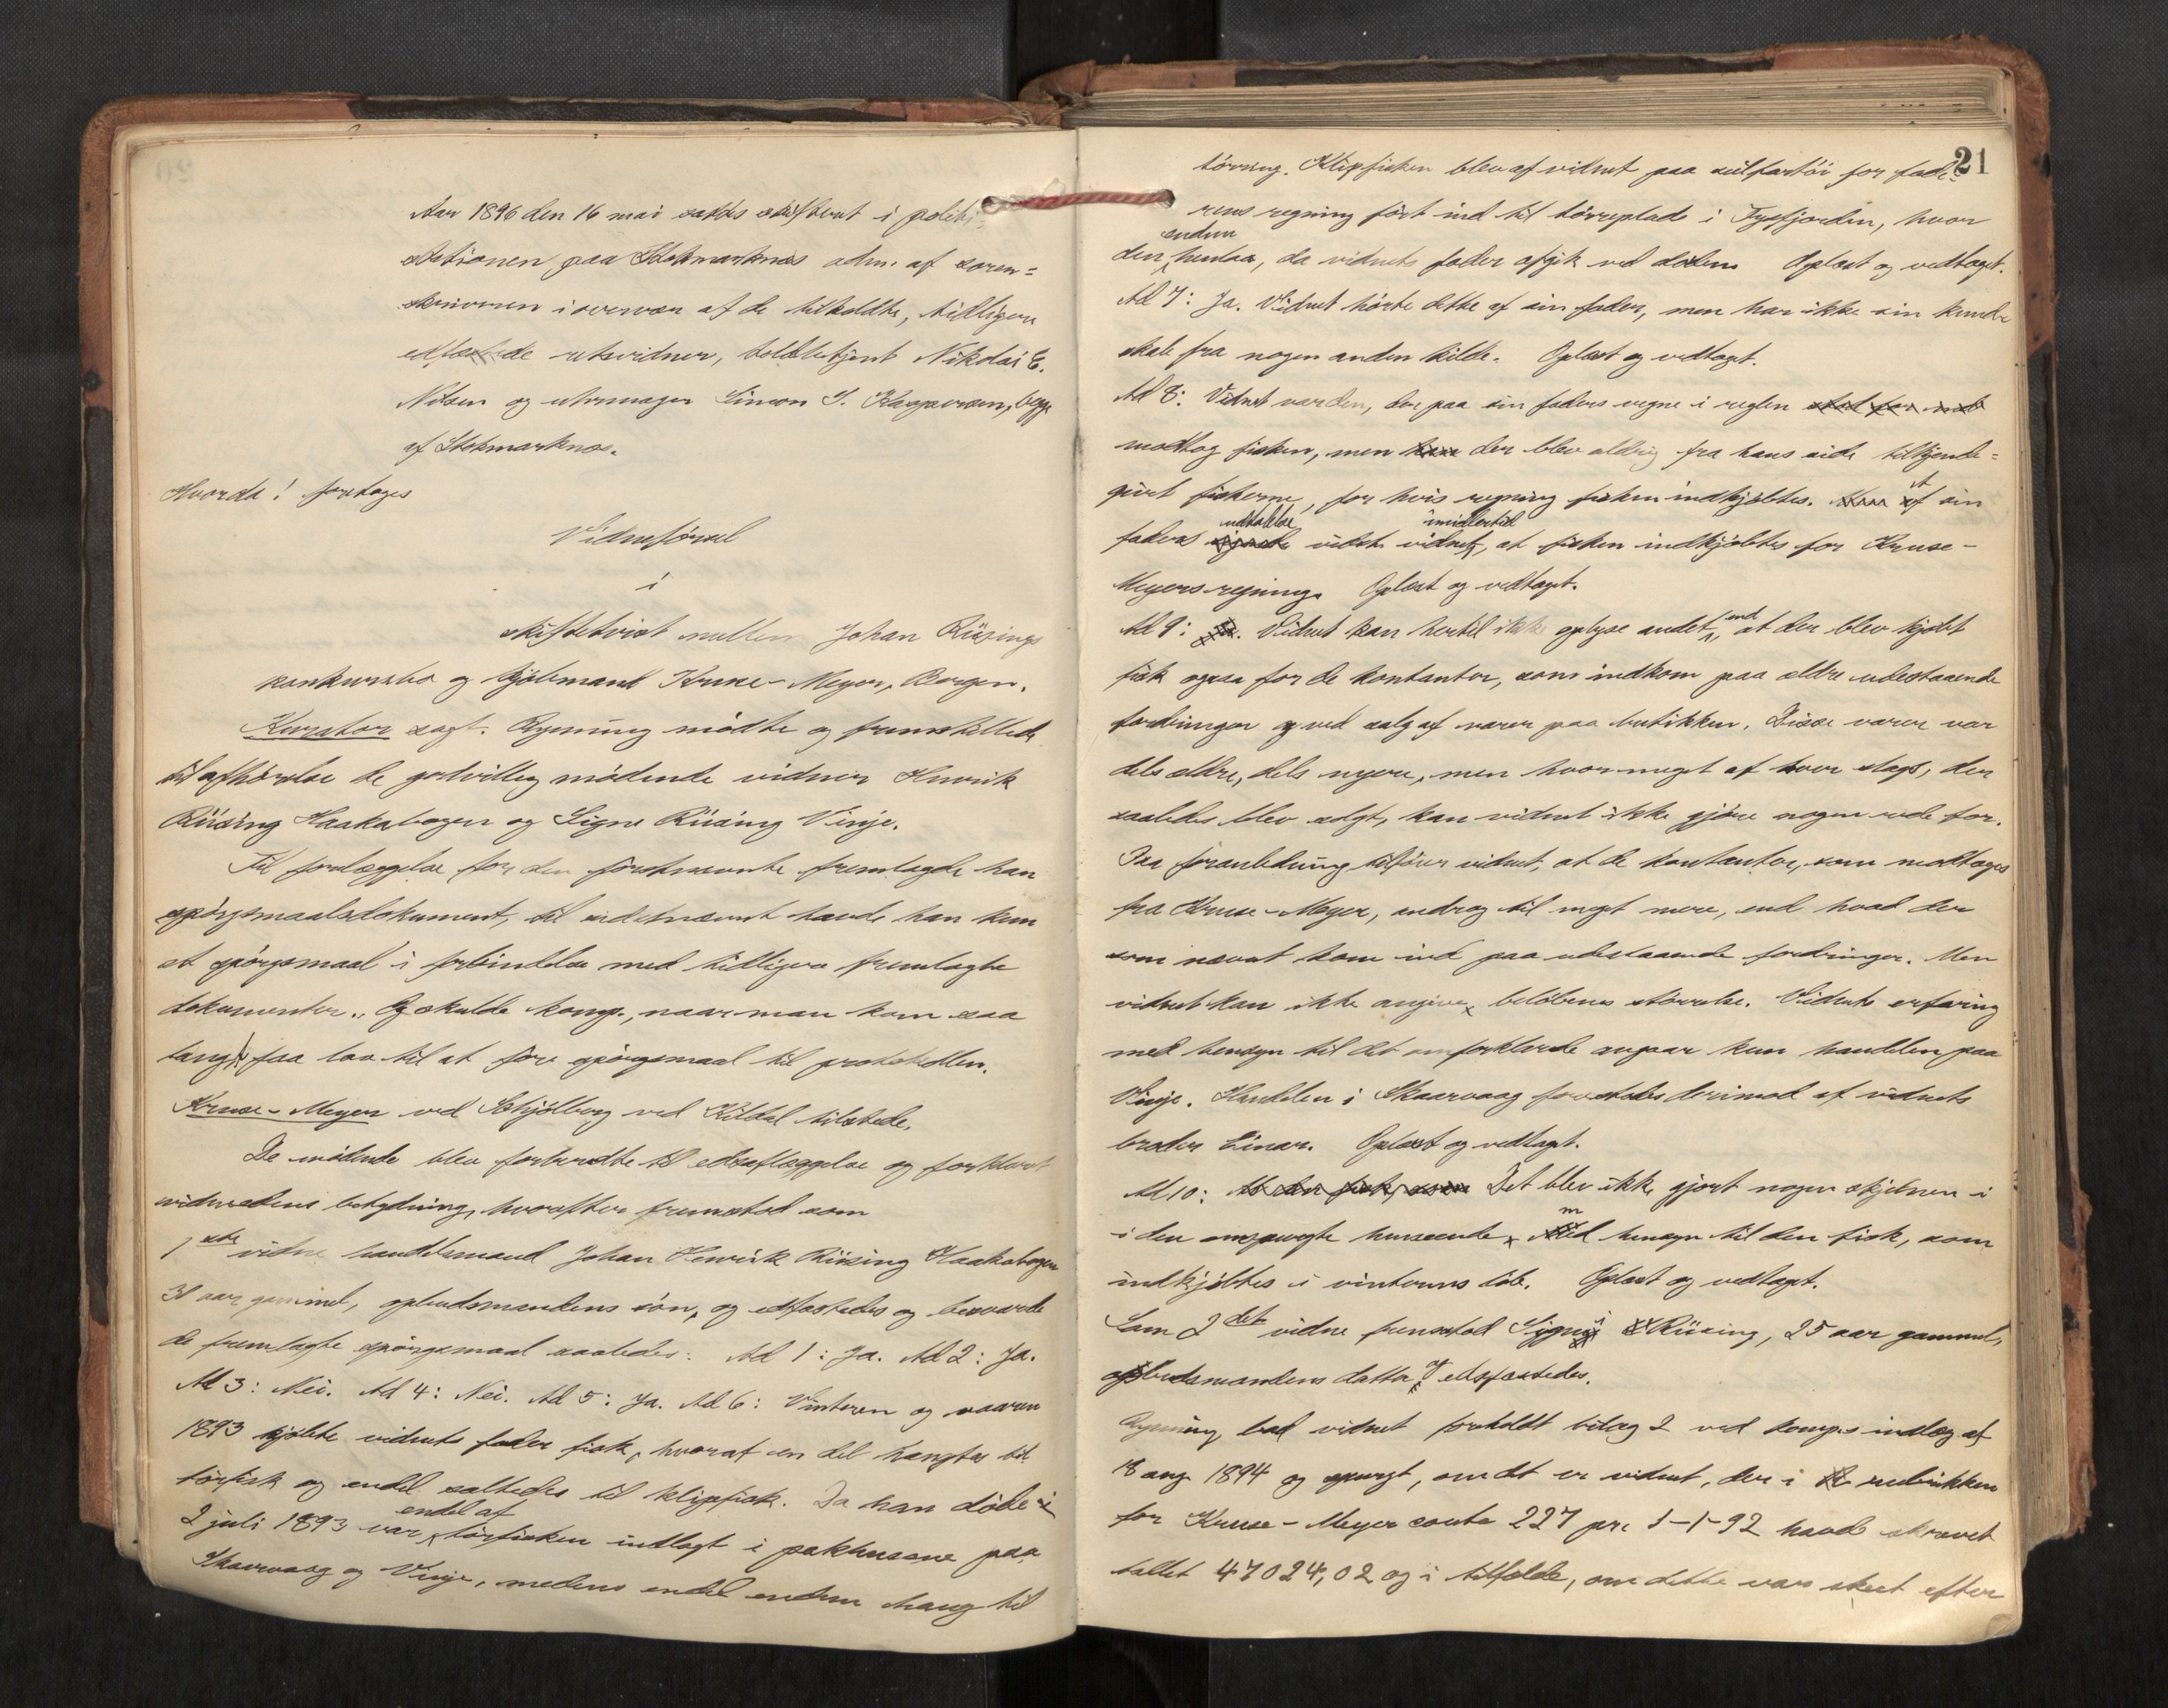 Aar 1896 den 16 mai sattes skifteret i politi
stationen paa Stokmarknæs adm. af soren=
skriveren i overvær af de tilkaldte, tidligere
edfæstede retsvidner, toldbetjent Nikolai E.
Nilsen og uhrmager Simon S. Kaspersen, begge
af Stokmarknæs.
Hvorda! foretoges
Vidneførsel
i
skiftetvist mellem Johan Rüsings
konkursbo og kjøbmand Kruse-Meyer, Bergen.
Kurator sagf. Rynning mødte og fremstillede
til afhørelse de godvillig mødende vidner Henrik
Rüsing Haakabogen og Signe Rüsing Vinje.
Til forelæggelse for den førstnævnte fremlagde han
spørgsmaalsdokument, til sidstnævnt havde han kun
et spørgsmaal i forbindelse med tidligere fremlagte
dokumenter. Og skulde komp., naar man kom saa
langt, faa lov til at føre spørgsmaal til protokollen.
Kruse-Meyer ved Schjølberg ved Kildal tilstede.
De mødende blev forberedte til edsaflæggelse og forklaret
vidneedens betydning, hvorefter fremstod som
1ste vidne handelsmand Johan Henrik Rüsing Haakabogen
31 aar gammel, opbudsmandens søn, og edfæstedes og besvarede
de fremlagte spørgsmaal saaledes: Ad 1: Ja. Ad 2: Ja.
Ad 3: Nei. Ad 4: Nei. Ad 5: Ja. Ad 6: Vinteren og vaaren
1893 kjøbte vidnets fader fisk, hvoraf en del hængtes til
tørfisk og endel saltedes til klipfisk. Da han døde i
endel af
2 juli 1893 var tørfisken indlagt i pakhusene paa
Skaarvaag og Vinje, medens endel endnu hang til
21
tørring. Klipfisken blev af vidnet paa seilfartøi for fade-
rens regning ført ind til tørreplads i Tysfjorden, hvor
endnu
den henlaa, da vidnets fader afgik ved døden. Oplæst og vedtaget.
Ad 7: Ja. Vidnet hørte dette af sin fader, men har ikke sin kund-
skab fra nogen anden kilde. Oplæst og vedtaget.
Ad 8: Vidnet var den, der paa sin faders vegne i reglen
modtog fisken, men der blev aldrig fra hans side tilkjende=
givet fiskerne, for hvis regning fisken indkjøbtes. Af sin
udtalelse imidlertid
faders vidste vidnet, at fisken indkjøbtes for Kruse-
Meyers regning. Oplæst og vedtaget.
Ad 9: Vidnet kan hertil ikke oplyse andet, end at der blev kjøbt
fisk ogsaa for de kontanter, som indkom paa ældre udestaaende
fordringer og ved salg af varer paa butikken. Disse varer var
dels ældre, dels nyere, men hvor meget af hver slags, der
saaledes blev solgt, kan vidnet ikke gjøre nogen rede for.
Paa foranledning tilføier vidnet, at de kontanter, som modtoges
fra Kruse-Meyer, androg til meget mere, end hvad der
som nævnt kom ind paa udestaaende fordringer. Men
vidnet kan ikke angive beløbenes størrelse. Vidnets erfaring
med hensyn til det omforklarede angaar kun handelen paa
Vinje. Handelen i Skaarvaag forestodes derimod af vidnets
broder Einar. Oplæst og vedtaget.
Ad 10: Det blev ikke gjort nogen skjelnen i
i den omspurgte henseende med hensyn til den fisk, som
indkjøbtes i vinterens løb. Oplæst og vedtaget.
Som 2det vidne fremstod Signe Rüsing, 25 aar gammel,
opbudsmandens datter og edsfæstedes.
Rynning bad vidnet foreholdt bilag 2 ved komp.s indlæg af
18 aug 1894 og spurgt, om det er vidnet, der i rubrikken
for Kruse-Meyer conto 227 pr. 1-1-92 havde skrevet
tallet 47024,02 og i tilfælde, om dette var skeet efter